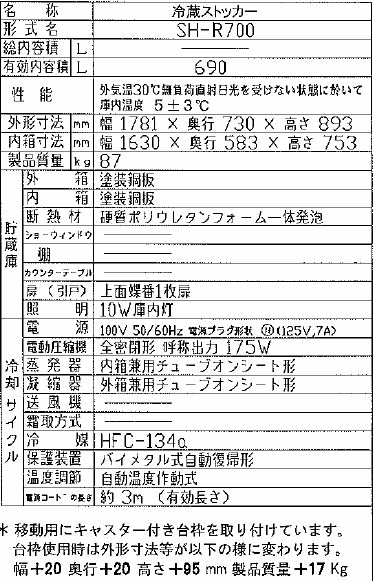 名 称 冷蔵ストッカー
形式名 SH-R700
総内容積 L ————
有効内容積 L 690
性 能 外気温30℃無負荷直射日光を受けない状態に於いて
庫内温度 5±3℃
外形寸法 mm 幅1781×奥行730×高さ893
内箱寸法 mm 幅1630×奥行583×高さ753
製品質量 kg 87
貯蔵庫
外 箱 塗装鋼板
内 箱 塗装鋼板
断熱材 硬質ポリウレタンフォーム一体発泡
ショーウィンドウ ————
棚 ————
カウンターテーブル ————
扉(引戸) 上面蝶番1枚扉
照 明 10W庫内灯
電 源 100V 50/60Hz 電源プラグ形状 (125V,7A)
冷却サイクル
電動圧縮機 全密閉形 呼称出力 175W
蒸発器 内箱兼用チューブオンシート形
凝縮器 外箱兼用チューブオンシート形
送風機 ————
霜取方式 ————
冷 媒 HFC-134a
保護装置 バイメタル式自動復帰形
温度調節 自動温度作動式
電源コードの長さ 約3m (有効長さ)
* 移動用にキャスター付き台枠を取り付けています。
台枠使用時は外形寸法等が以下の様に変わります。
幅+20 奥行+20 高さ+95 mm 製品質量+17 Kg